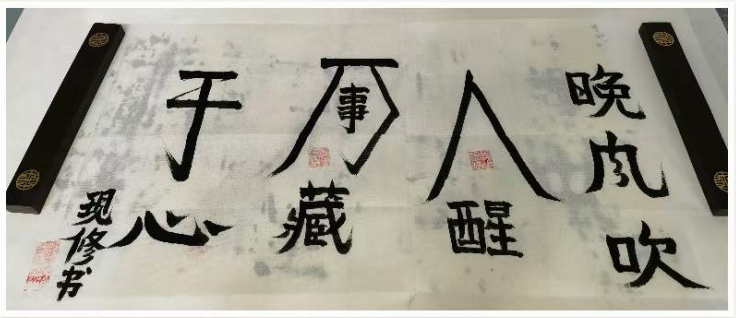 晚风吹
人醒
万事藏
于心
现修书